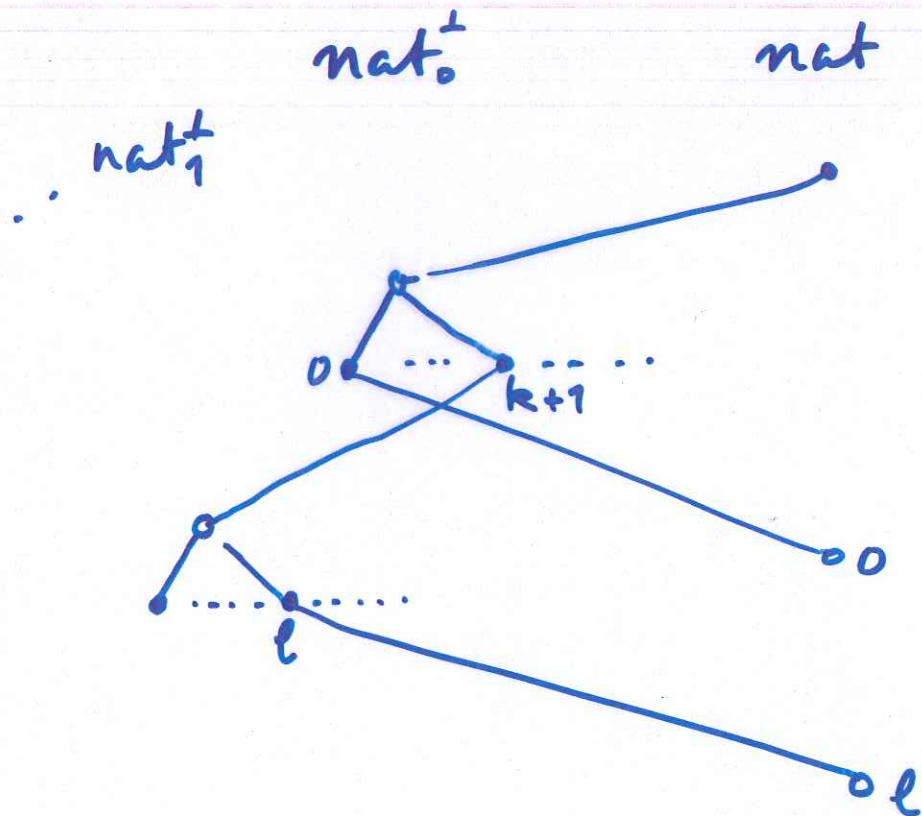 nat₀^⊥ nat
.. nat₁^⊥
0 ... k+1 ......
0
...... l ......
l